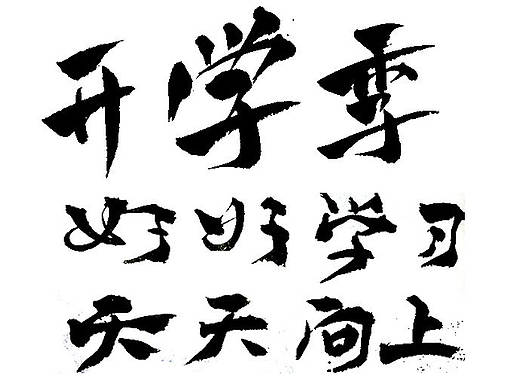 开学季
好好学习
天天向上